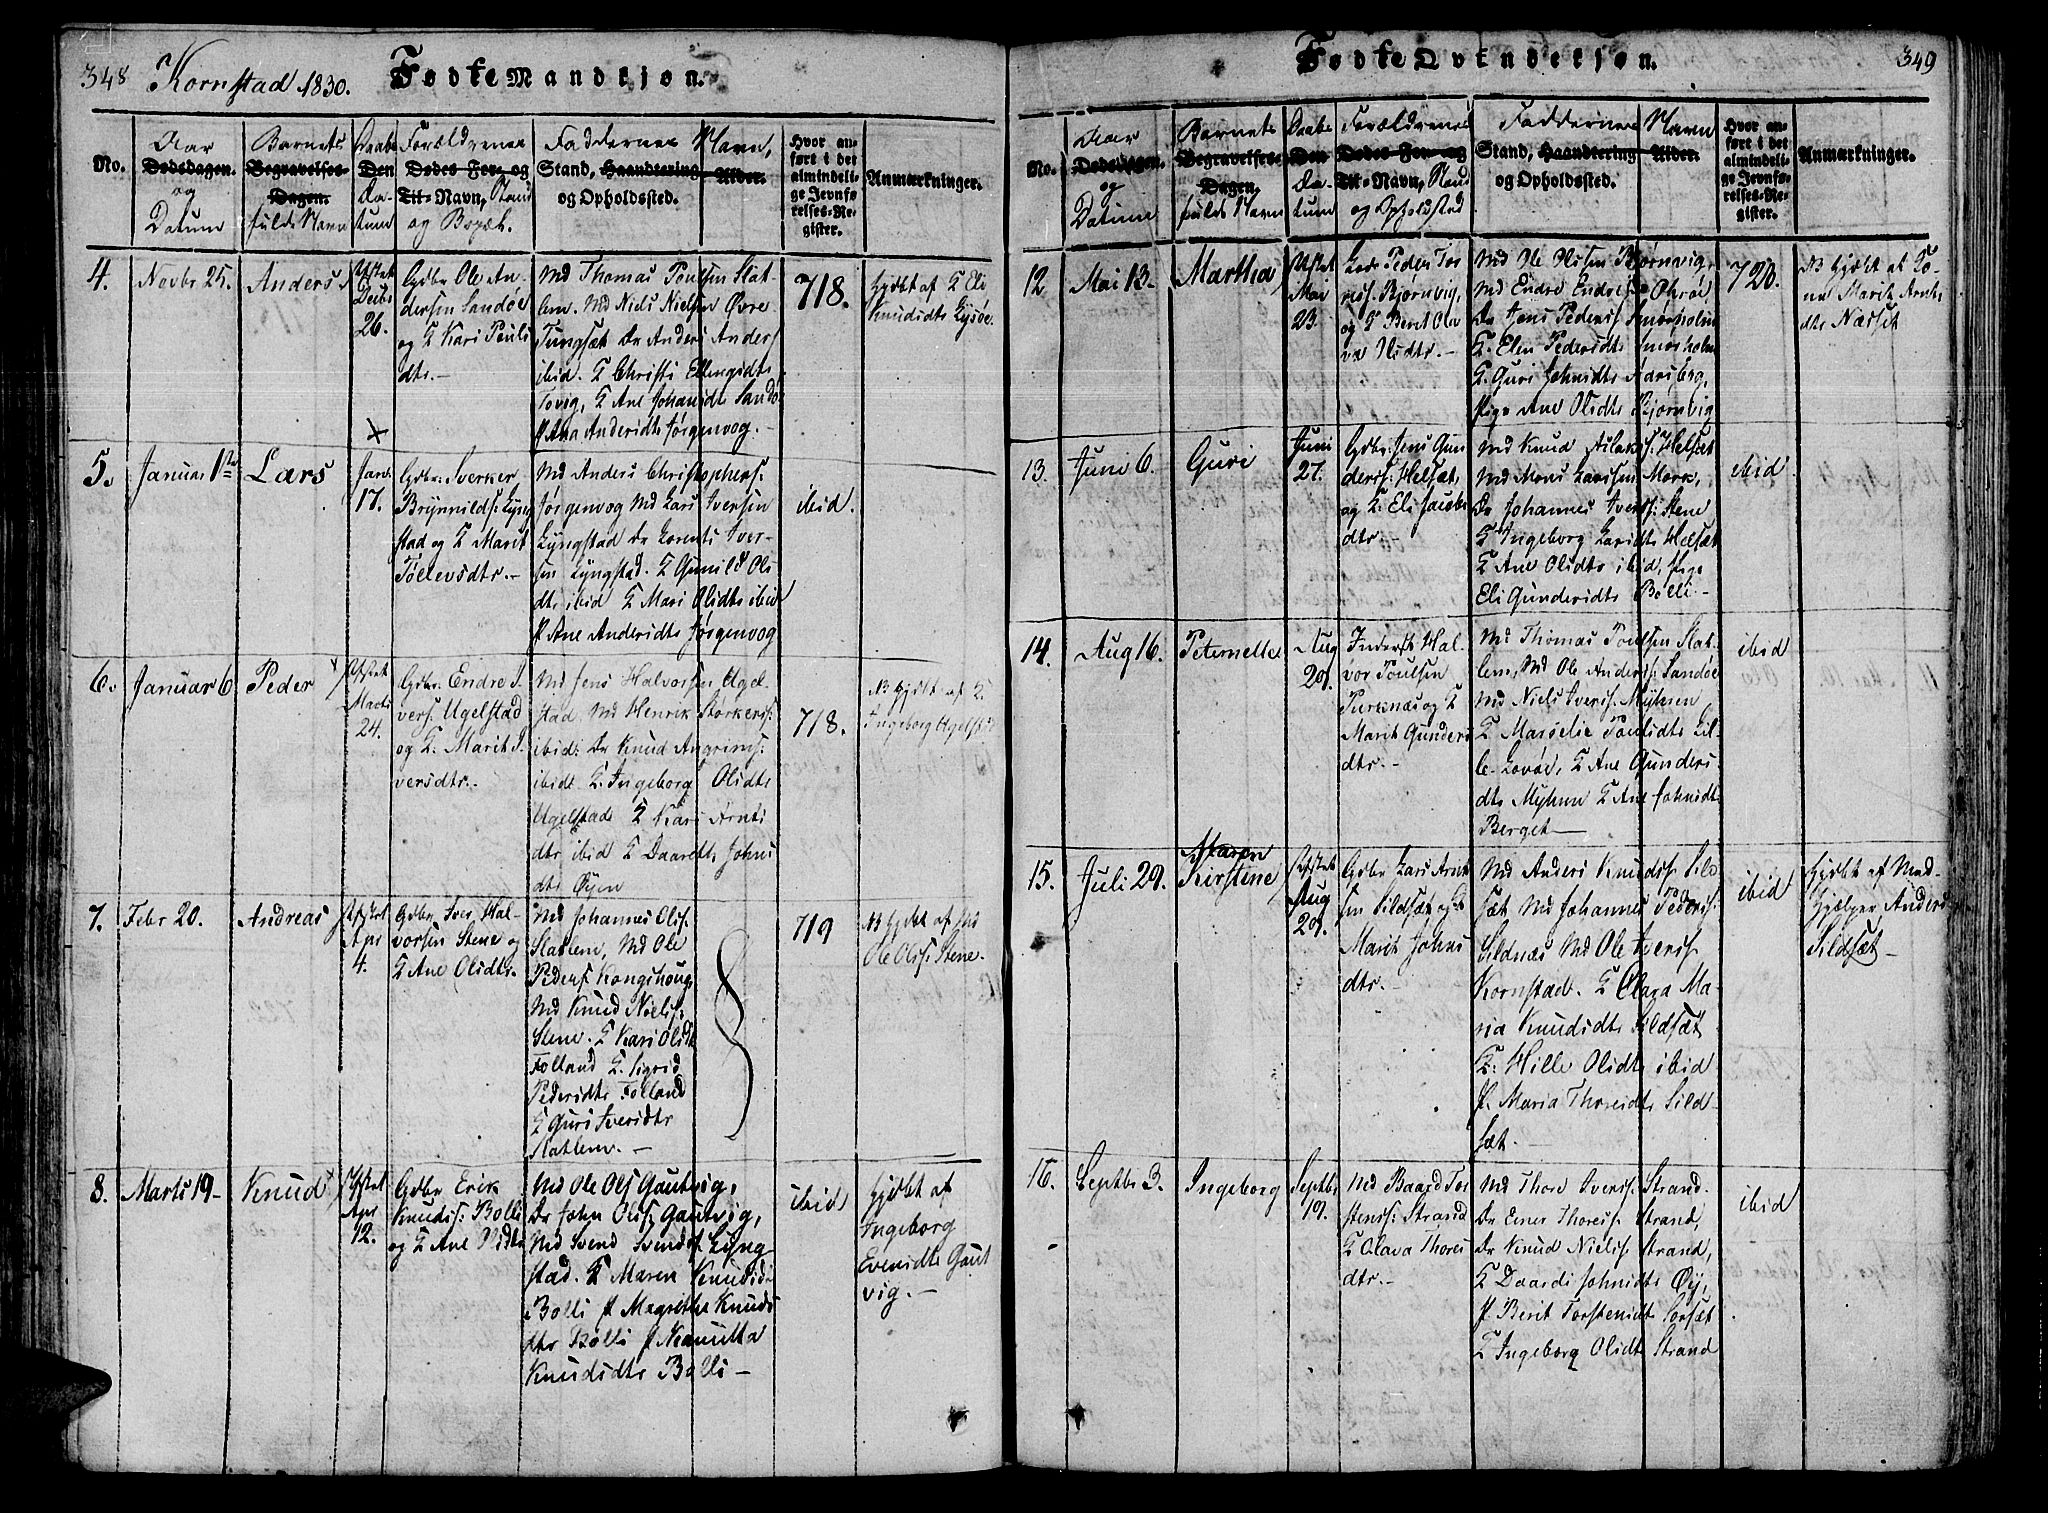 348 Kornstad 1830. Fødte Mandkjøn.
No.
Aar
Dødsdagen.
og
Datum
Barnets
Begravelses-
Dagen.
fulde Navn
Daabs
Den
Da-
tum
Forældrenes
Dødes For- og
Til-Navn, Stand
og Bopæl.
Faddernes Navn,
Stand, Haandtering Alder.
og Opholdssted.
Hvor an-
ført i det
almindeli-
ge Jevnfø-
relses-Re-
gister.
Anmærkninger.
4.
Novbr 25.
Anders
Decbr
26.
Gdbr Ole An-
dersen Sandøe
og K Kari Pouls
dtr.-
Md Thomas Poulsen Slat-
lem. Md Niels Nielsen Øvre
Tungsæt Dr Anders Anders
ibid. K Christi Ellingsdtr
K Ane Johansdtr Sandø
P Ana Andersdtr Jørgenvog.-
718.
Hjdbt af K Eli
Knudsdtr Lysøe
5.
Januar 1ste
Lars
Jan.
17.
Gdbr: Sverker
Brynnilds: Lyng
stad og K Marit
Tollevsdtr.-
Md Anders Christophers:
Jørgenvog Md Lars Iversen
Lyngstad Dr Lorents Iver-
sen Lyngstad. K Gunild Ols
dtr ibid K Mari Olsdtr ibid
P Ane Andersdtr Jørgenvog
ibid.
6.
Januar 6
Peder
Marts
24.
Gdbr. Endre I-
vers: Ugelstad
og K: Marit I-
versdtr.-
Md Jens Halvorsen Ugel-
stad. Md Henrik Størkers:
ibid: Dr Knud Angrims:
ibid: K. Ingeborg Olsdtr
Ugelstad K Kari Arnts
dtr ibid K Daaredt Johns
dtr Øyen
718.
NB Hjdbt af K
Ingeborg Ugelst:
7.
Febr 20.
Andreas
Apr
4.
Gdbr Iver Hal-
vorsen Stene og
K Ane Olsdtr.
Md Johannes Ols:
Slatlem, Md Ole
Peders Kongshoug
Md Knud Niels:
Stene. K Kari Olsdt
Folland K. Sigrid
Pedersdtr Folland
K Guri Iversdtr
Slatlem.-
719
NB Hjdbt af
Ole Ols: Stene.
8.
Marts 19-
Knud
Apr
12.
Gdbr Erik
Knuds: Bolli
og K Ane Olsdtr
Md Ole Ols Gautvig,
Dr John Ols: Gautvig,
Md Svend Svends Lyng-
stad. K Maren Knudsd:
Bolli P Magrethe Knuds
dtr Bolli P
Knudsdtr Bolli-
ibid
Hjdbt af
Ingeborg
Evensdtr Gaut
vig.-
Fødte Qvindekjøn. 349
No.
Aar
Dødsdagen.
og
Datum
Barnets
Begravelses-
Dagen.
fulde Navn
Daabs
Den
Da-
tum
Forældrenes
Dødes For- og
Til-Navn, Stand
og Opholdssted
Faddernes Navn
Stand, Haandtering Alder.
og Opholdssted.
Hvor an-
ført i det
almindeli-
ge Jevnfø-
relses-Re-
gister.
Anmærkninger.
12
Mai 13.
Martha
Mai
23.
Peder Tor
Bjørnvig,
og K Berit Ola
Md Ole Olsen Bjørnvig,
Md Endre Endres
Dr Jens Peders Smørholm
K. Elen Pedersdtr Smørholm
K. Guri Johnsdtr Aarsbog,
Pige Ane Olsdtr Bjørnvig
720.
NB Hjdbt af Ko-
ne Marit Arnts
dtr Næsset
13.
Juni 6.
Guri
Juni
27.
Gdbr: Jens Gun
ders: Helsæt,
og K: Eli Jacobs
dtr.-
Md Knud Aslaks: Helsæt
Md Mons Larssen Mork,
Dr Johannes Ivers: Stene
K Ingeborg Larsdtr Helsæt
K Ane Olsdtr ibid, Pige
Eli Gundersdtr Bolli-
ibid
14.
Aug 16.
Peternelle
Aug
29.
Inderst Hal-
vor Poulsen
og K
Marit Gunders
dtr.-
Md Thomas Poulsen Slat-
lem, Md Ole Anders: Sandøe
Md Niels Ivers: Myhren
K Marselie Poulsdtr Lil-
le-Lovøe, K Ane Gunders
dtr Myhren K Ane Johnsdtr
Berget-
ibid
15.
Juli 29.
Maren
Kirstine
Aug
29.
Gdbr Lars Arnt
sen Sildsæt og K
Marit Johns
dtr.-
Md Anders Knuds: Sild
sæt Md Johannes Peders:
Sildnæs Md Ole Ivers:
Kornstad. K Olava Ma-
ria Knudsdtr Sildsæt
K: Hille Olsdtr ibid
P. Maria Thoresdtr Sild-
sæt.-
ibid
Hjdbt af Med-
hjælper Anders
Sildsæt-
16.
Septbr 3.
Ingeborg
Septbr
19.
Md Baard Tor
stens: Strand
K Olava Thores
dtr.-
Md Thore Ivers: Strand.
Dr Einer Thores: Strand,
Dr Knud Niels: Strand,
K Daardi Johnsdtr Øy,
P Berit Torstensdtr Sorsæt
K Ingeborg Olsdtr Strand
ibid